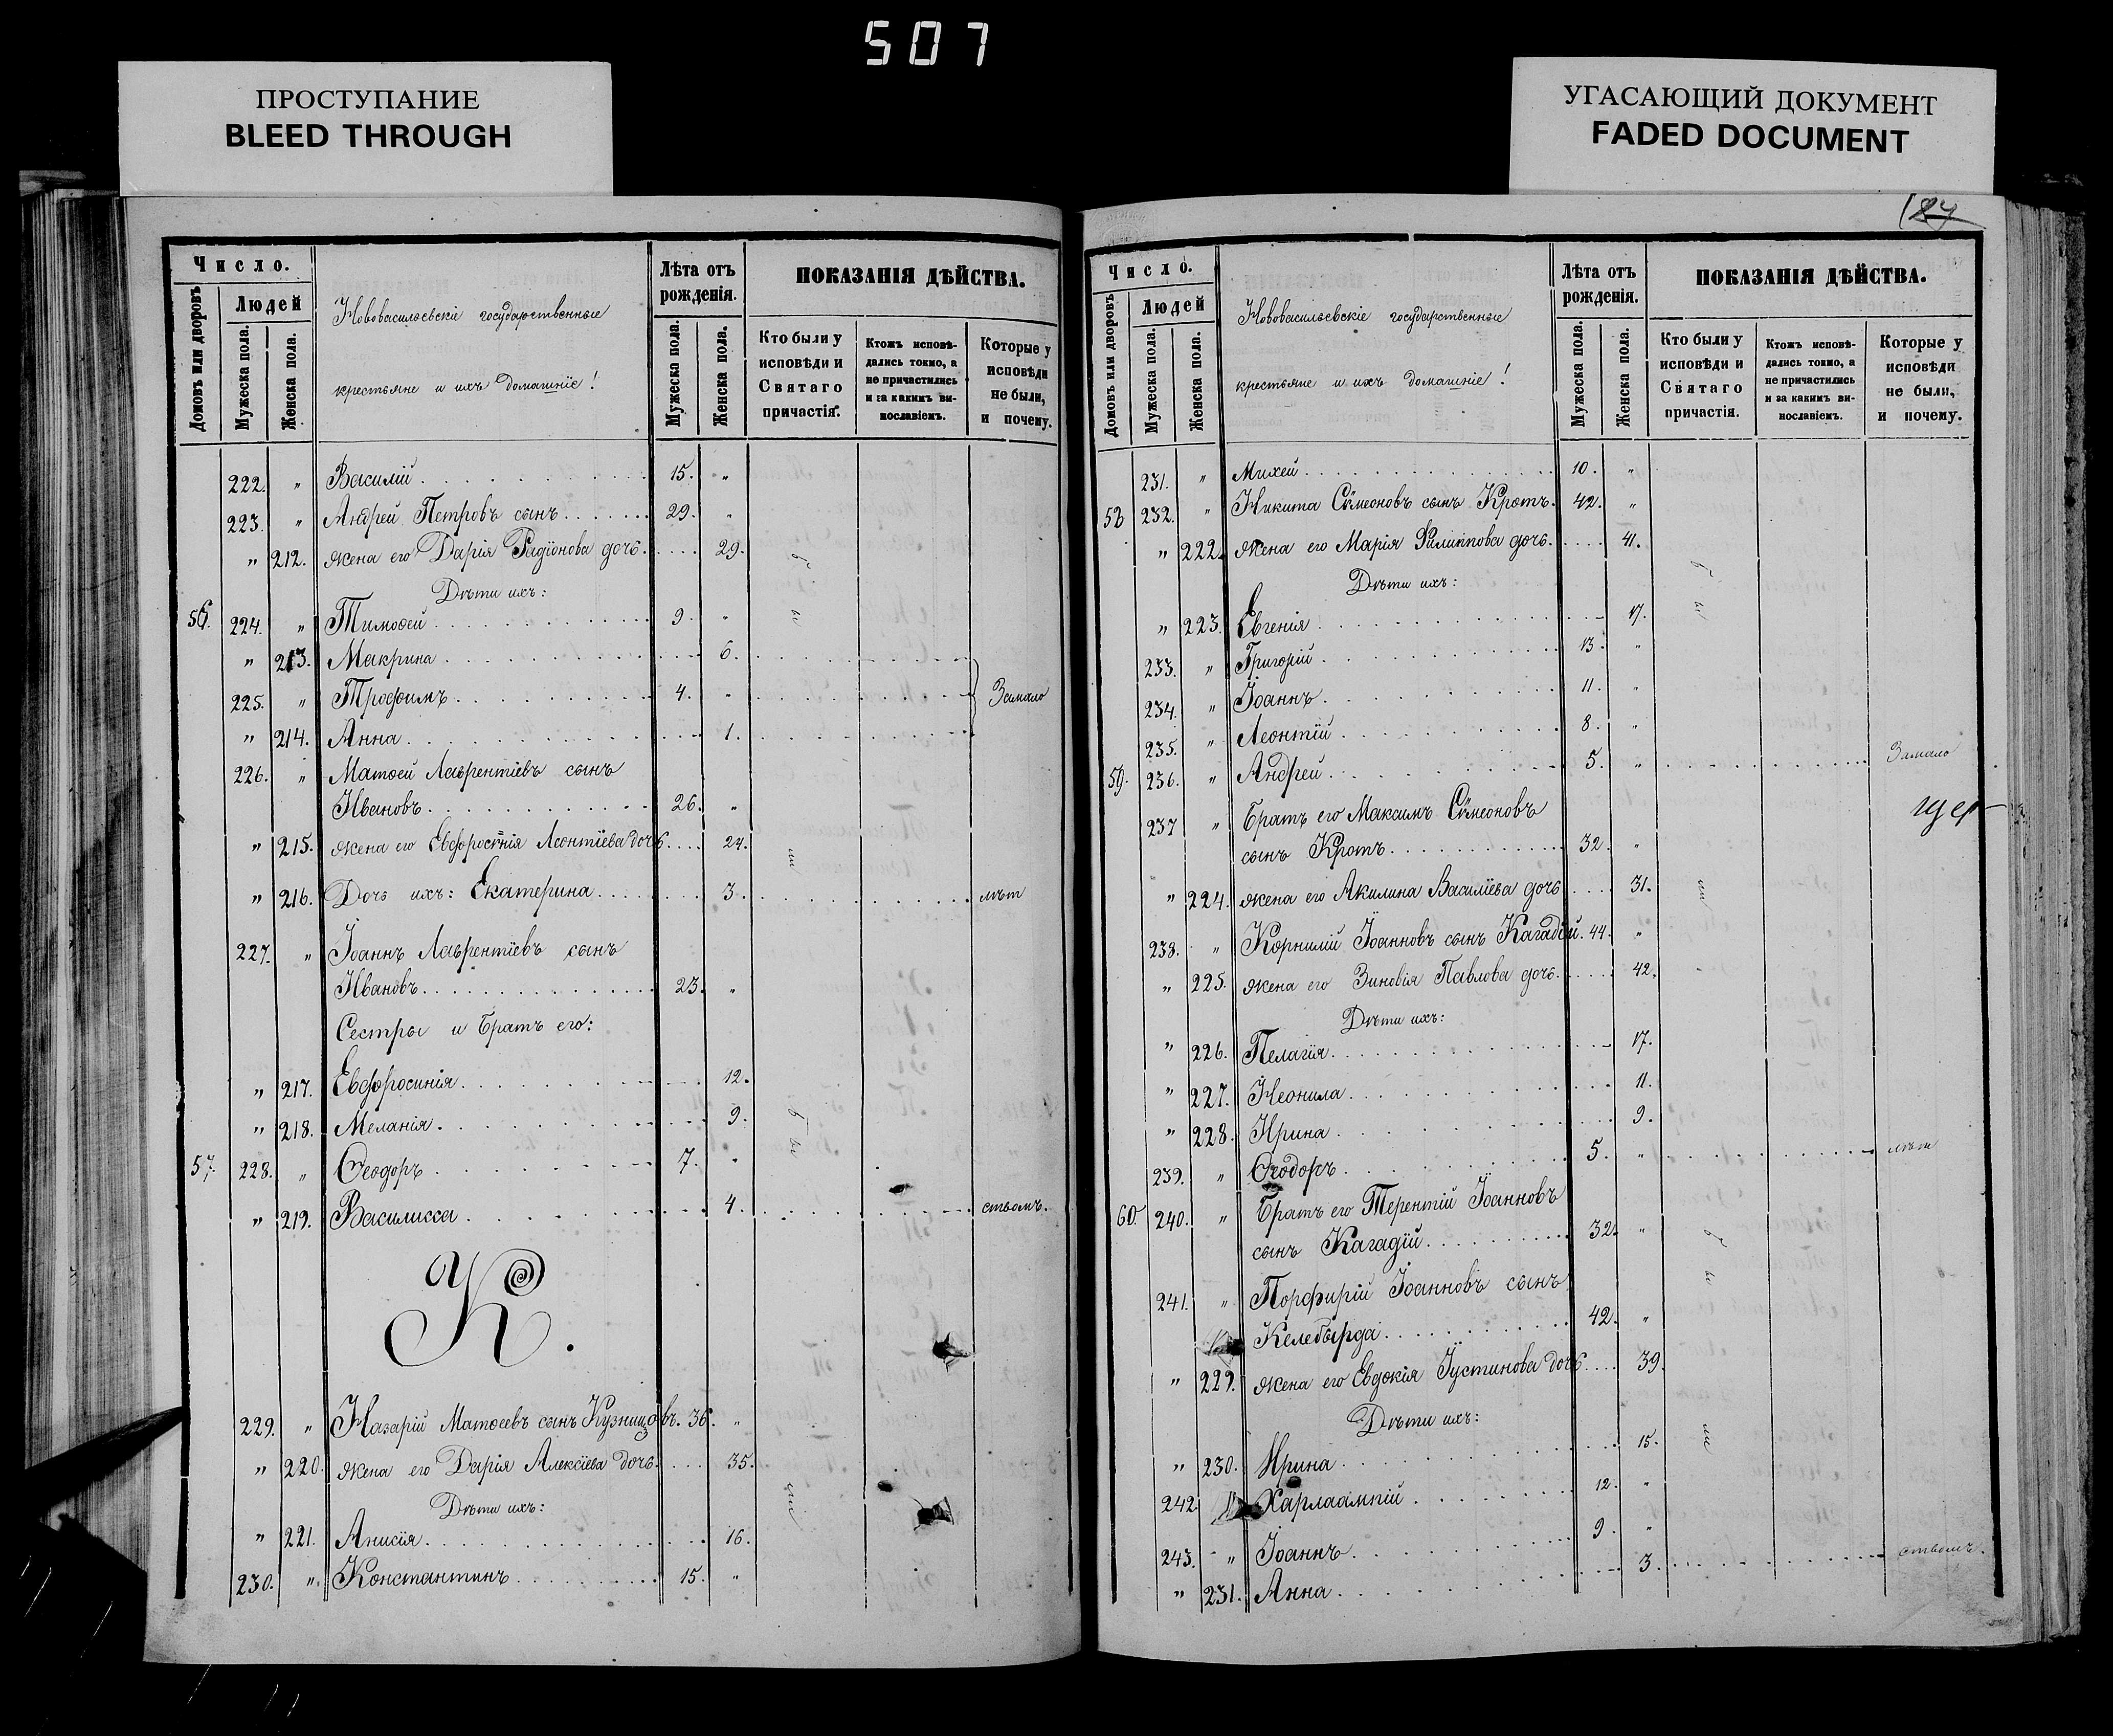 507
ПРОСТУПАНИЕ
BLEED THROUGH
УГАСАЮЩИЙ ДОКУМЕНТ
FADED DOCUMENT
Число.
Людей
Домовъ или дворовъ
Мужеска пола.
Женска пола.
Нововасильевскіе государственные
крестьяне и ихъ домашніе!
Лѣта отъ
рожденія.
Мужеска пола.
Женска пола.
ПОКАЗАНІЯ ДѢЙСТВА.
Кто были у
исповѣди и
Святаго
причастія.
Ктожъ исповѣ-
дались токмо, а
не причастились
и за какимъ ви-
нословіемъ.
Которые у
исповѣди
не были,
и почему.
222. „ Василій 15. „
223. „ Андрей Петровъ сынъ 29. „
„ 212. жена его Дарія Радіонова дочь 29.
Дѣти ихъ:
56. 224. „ Тимоѳей 9. „
„ 213. Макрина 6.
225. „ Трофимъ 4. „ Замало
„ 214. Анна 1.
226. „ Матѳей Лаврентіевъ сынъ
Ивановъ 26. „
„ 215. жена его Евфросинія Леонтіева дочь 24.
„ 216. Дочь ихъ: Екатерина 3. лѣт
227. „ Іоаннъ Лаврентіевъ сынъ
Ивановъ 23. „
Сестры и братъ его:
„ 217. Евфросинія 12.
„ 218. Меланія 9.
57. 228. „ Ѳеодоръ 7. „
„ 219. Василисса 4. ствомъ.
К.
229. „ Назарій Матѳеевъ сынъ Кузнецовъ. 36. „
„ 220. жена его Дарія Алексіева дочь 35.
Дѣти ихъ:
„ 221. Анисія 16.
230. „ Константинъ 15. „
Число.
Людей
Домовъ или дворовъ
Мужеска пола.
Женска пола.
Нововасильевскіе государственные
крестьяне и ихъ домашніе!
Лѣта отъ
рожденія.
Мужеска пола.
Женска пола.
ПОКАЗАНІЯ ДѢЙСТВА.
Кто были у
исповѣди и
Святаго
причастія.
Ктожъ исповѣ-
дались токмо, а
не причастились
и за какимъ ви-
нославіемъ.
Которые у
исповѣди
не были,
и почему.
231. „ Михей 10. „
58 232. „ Никита Сѵмеоновъ сынъ Кротъ. 42. „
„ 222. жена его Марія Филиппова дочь. 41.
Дѣти ихъ:
„ 223. Евгенія 17.
233. „ Григорій 13. „
234. „ Іоаннъ 11. „
235. „ Леонтій 8. „
59. 236. „ Андрей 5. „ Замало
237 „ Братъ его Максимъ Сѵмеоновъ
сынъ Кротъ 32. „
„ 224. жена его Акилина Василіева дочь 31.
238. „ Корнилій Іоанновъ сынъ Кагадій. 44. „
„ 225. жена его Зиновія Павлова дочь. 42.
Дѣти ихъ:
„ 226. Пелагія 17.
„ 227. Неонила 11.
„ 228. Ирина 9.
239. „ Ѳеодоръ 5. „ лѣт
60. 240. „ Братъ его Терентій Іоанновъ
сынъ Кагадій 32. „
241. „ Порфирій Іоанновъ сынъ
Келебырда 42. „
„ 229. жена его Евдокія Іустинова дочь 39.
Дѣти ихъ:
„ 230. Ирина 15.
242. Харлаампій 12. „
243. „ Іоаннъ 9. „
„ 231. Анна 3. ствомъ.